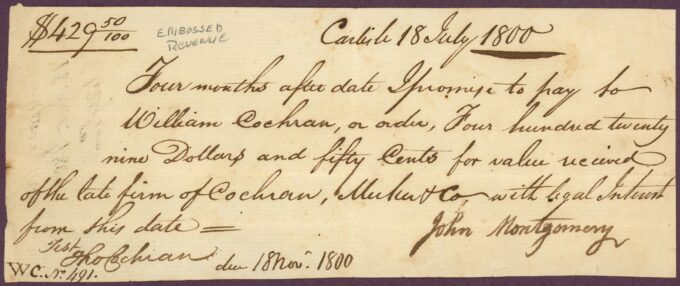 $429 50/100
EMBOSSED
REVENUE
Carlisle 18 July 1800
Four months after date I promise to pay to
William Cochran, or order, Four hundred twenty
nine Dollars and fifty Cents for value recieved
of the late firm of Cochran, & Co, with legal Interest
from this date =
John Montgomery
Test
Tho Cochran
due 18 Novr. 1800
WC. No. 491.